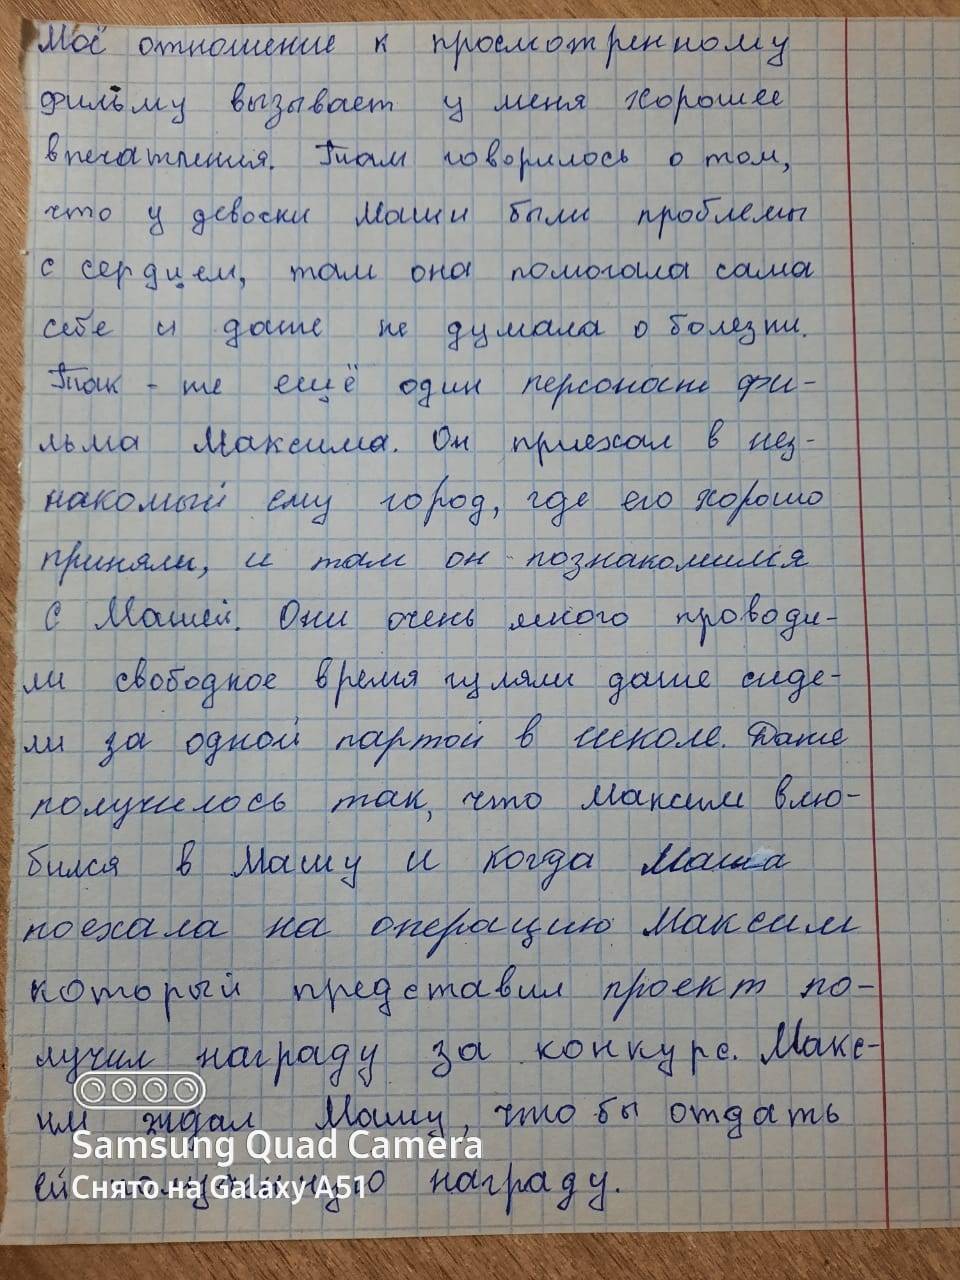 Моё отношение к просмотренному
фильму вызывает у меня хорошее
впечатления. Там говорилось о том,
что у девоски Маши были проблемы
с сердцем, там она помогала сама
себе и даже не думала о болезни.
Так-же ещё один персонаж фи-
льма Максима. Он приехал в нез-
накомый ему город, где его хорошо
приняли, и там он познакомился
с Машей. Они очень много проводи-
ли свободное время гуляли даже сиде-
ли за одной партой в школе. Даже
получилось так, что Максим влю-
бился в Машу и когда Маша
поехала на операцию Максим
который представил проект по-
лучил награду за конкурс. Макс-
им ждал Машу, что бы отдать
ей полученную награду.
Samsung Quad Camera
Снято на Galaxy A51